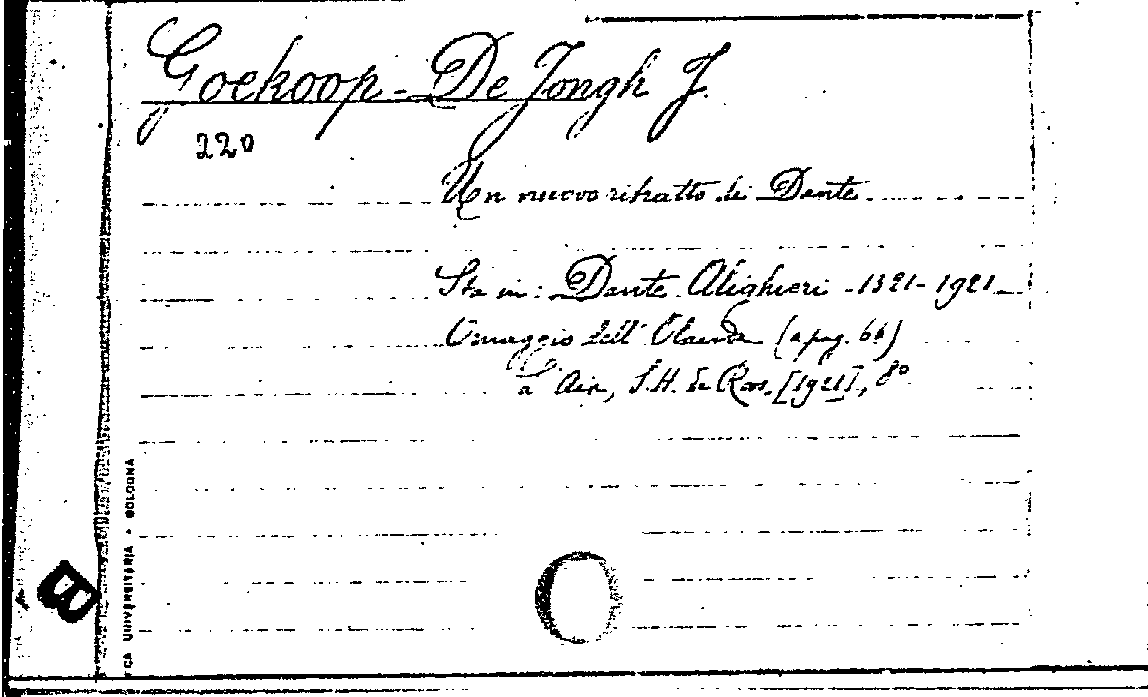 Goekoop - De Jongh J.
220
Un nuovo ritratto di Dante.
Sta in: Dante Alighieri - 1321 - 1921 -
Omaggio dell' Olanda (a pag. 66)
S.H. de Roos. [1921], 8°
CA UNIVERSITARIA • BOLOGNA
B